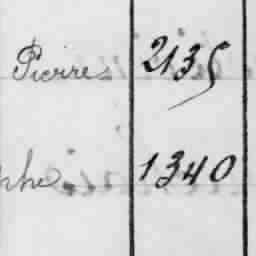 Pierre 2135
phe. 1340